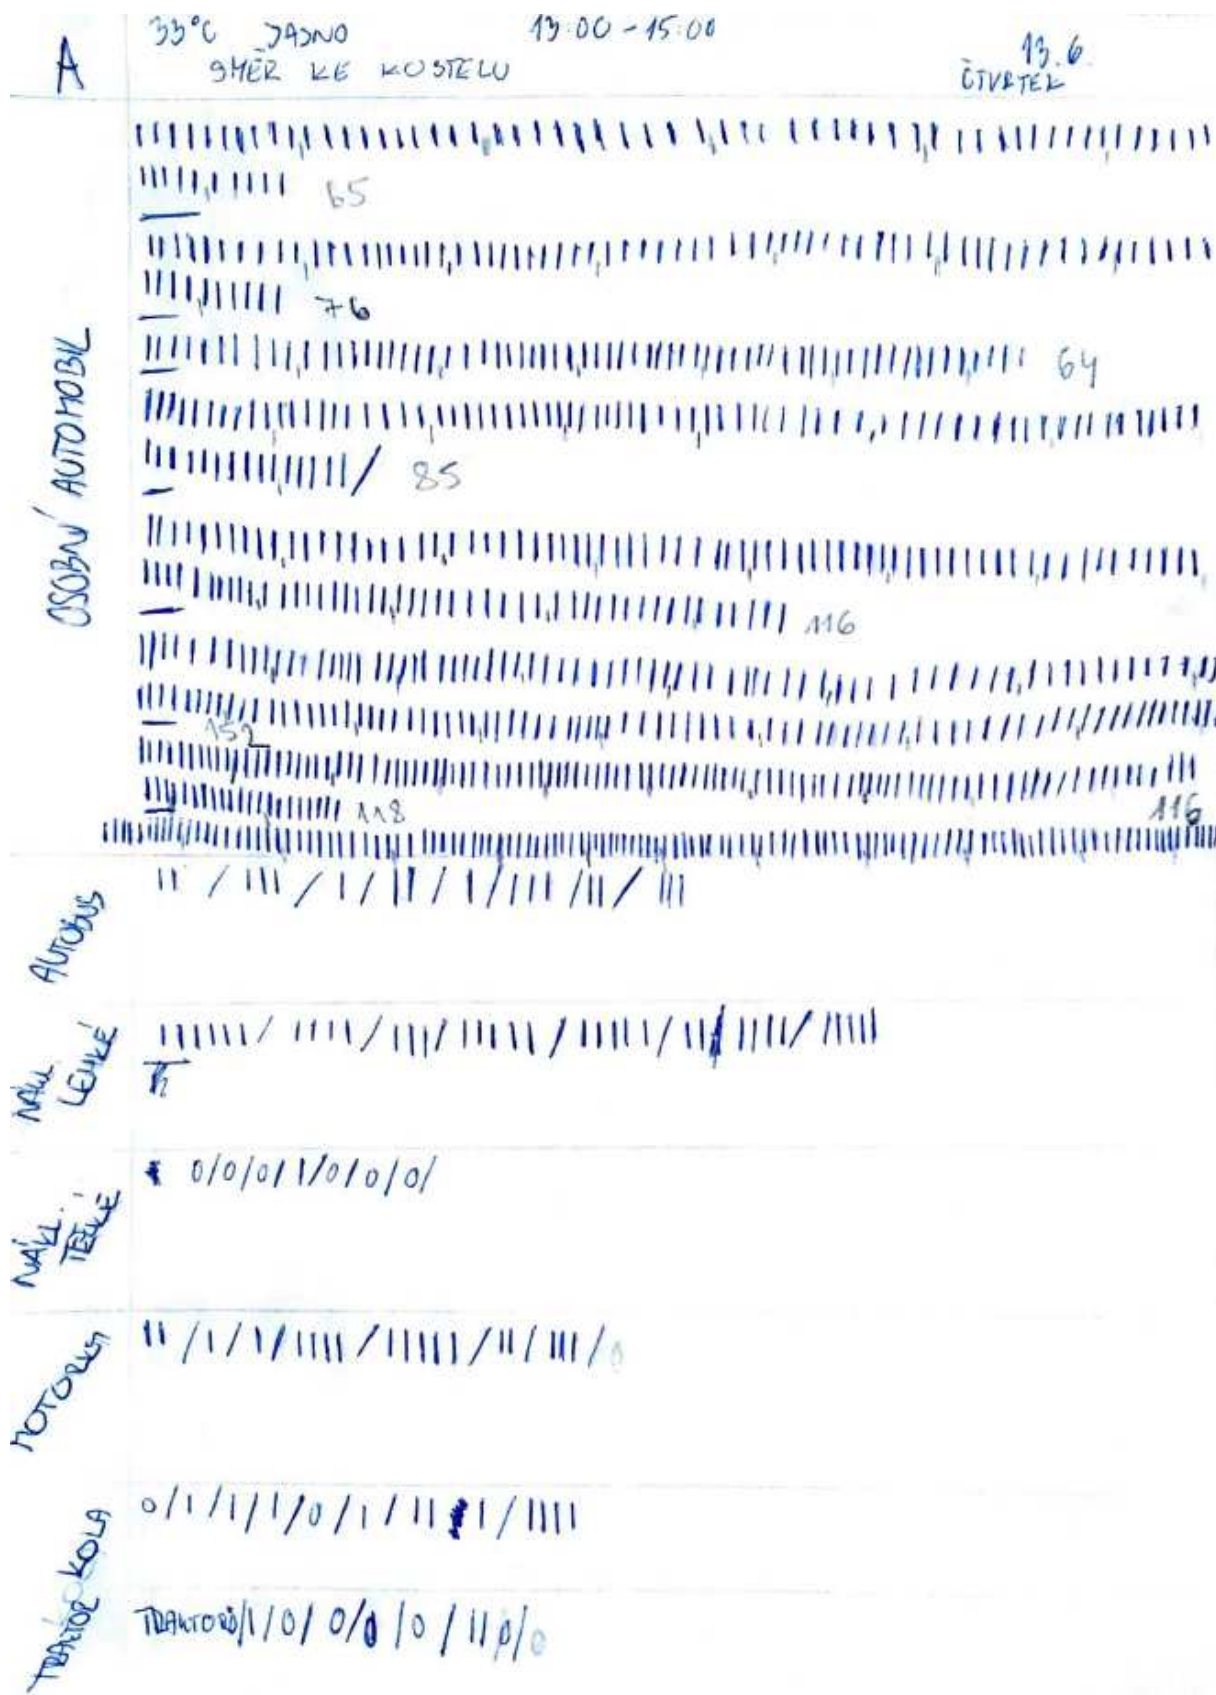 A
33°C JASNO 13:00-15:00
SMĚR KE KOSTELU
13.6.
ČTVRTEK
OSOBNÍ AUTOMOBIL
65
76
64
85
116
152
118
116
AUTOBUS
II / III / I / II / I / III / II / III
NÁKL. LEHKÉ
NÁKL. TĚŽKÉ
0/0/0/1/0/0/0/
MOTORKY
II / I / I / IIII / IIIII / II / III / 0
KOLA
0/I/I/I/0/I/II I/IIII
TRAKTOR
TRAKTORŮ/I/0/0/0/0/II 0/0